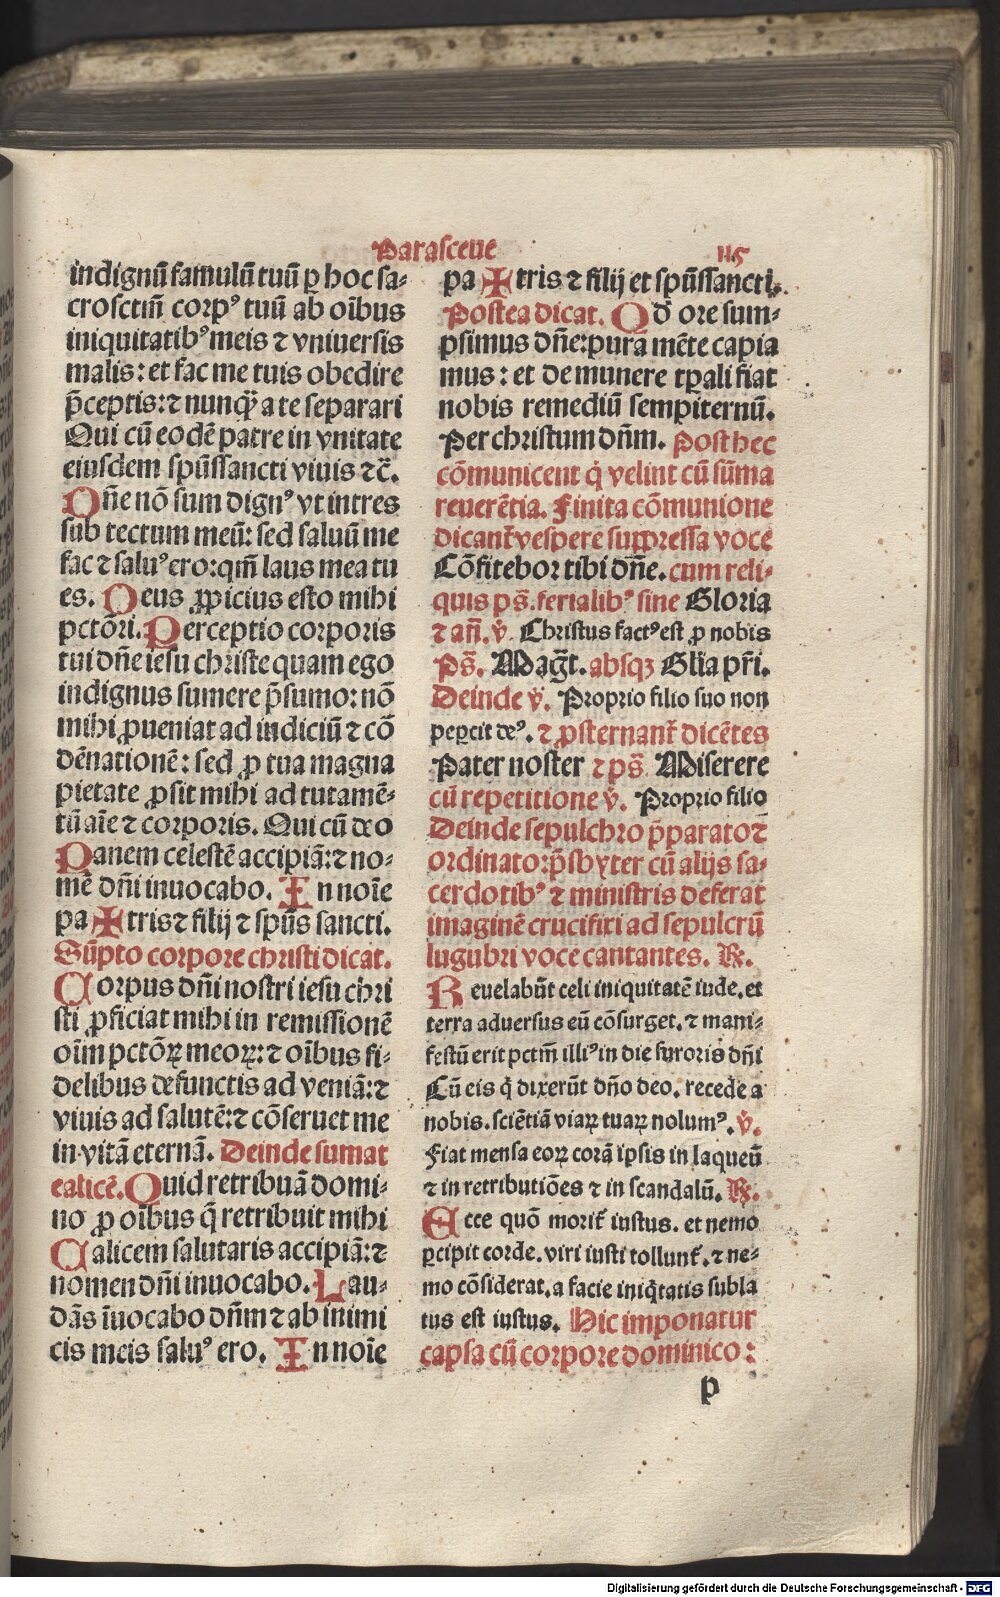 Parasceue
115
indignū famulū tuū ꝑ hoc sa⸗
crosctm̄ corpꝰ tuū ab oībus
iniquitatibꝰ meis ⁊ vniuersis
malis: et fac me tuis obedire
p̄ceptis: ⁊ nunqͣ a te separari
Qui cū eodē patre in vnitate
eiusdem spūssancti viuis ⁊c̄.
Dn̄e nō sum dignꝰ vt intres
sub tectum meū: sed saluū me
fac ⁊ saluꝰ ero: qm̄ laus mea tu
es. Deus ꝓpicius esto mihi
pctōri. Perceptio corporis
tui dn̄e iesu christe quam ego
indignus sumere p̄sumo: nō
mihi ꝓueniat ad indiciū ⁊ cō
dēnationē: sed ꝓ tua magna
pietate ꝓsit mihi ad tutamē⸗
tū aīe ⁊ corporis. Qui cū deo
Panem celestē accipiā: ⁊ no⸗
mē dn̄i inuocabo. In noīe
pa ✠ tris ⁊ filij ⁊ spūs sancti.
Sūpto corpore christi dicat.
Corpus dn̄i nostri iesu chri
sti ꝓficiat mihi in remissionē
oīm pctōꝝ meoꝝ: ⁊ oībus fi⸗
delibus defunctis ad veniā: ⁊
viuis ad salutē: ⁊ cōseruet me
in vitā eternā. Deinde sumat
calicē. Quid retribuā domi⸗
no ꝓ oībus q̄ retribuit mihi
Calicem salutaris accipiā: ⁊
nomen dn̄i inuocabo. Lau⸗
dās īuocabo dn̄m ⁊ ab inimi
cis meis saluꝰ ero. In noīe
pa ✠ tris ⁊ filij et spūssancti.
Postea dicat. Qd̄ ore sum⸗
psimus dn̄e: pura mēte capia
mus: et de munere tꝑali fiat
nobis remediū sempiternū.
Per christum dn̄m. Post hec
cōmunicent q̇ velint cū sūma
reuerētia. Finita cōmunione
dicant̄ vespere suppressa voce
Cōfitebor tibi dn̄e. cum reli⸗
quis ps̄. ferialibꝰ sine Gloria
⁊ an̄. ℣. Christus factꝰ est ꝓ nobis
Ps̄. Magt̄. absqꝫ Glīa pr̄i.
Deinde ℣. Proprio filio suo non
peꝑcit deꝰ. ⁊ ꝓsternant̄ dicētes
Pater noster ⁊ ps̄ Miserere
cū repetitione ℣. Proprio filio
Deinde sepulchro p̄parato ⁊
ordinato: p̄sbyter cū alijs sa⸗
cerdotibꝰ ⁊ ministris deferat
imaginē crucifixi ad sepulcrū
lugubri voce cantantes. ℟.
Reuelabūt celi iniquitatē iude. et
terra aduersus eū cōsurget. ⁊ mani⸗
festū erit pctm̄ illiꝰ in die furoris dn̄i
Cū eis q̇ dixerūt dn̄o deo. recede a
nobis. sciētiā viaꝝ tuaꝝ nolumꝰ. ℣.
Fiat mensa eoꝝ corā ipsis in laqueū
⁊ in retributiōes ⁊ in scandalū. ℟.
Ecce quō morit̄ iustus. et nemo
ꝑcipit corde. viri iusti tollunt̄. ⁊ ne⸗
mo cōsiderat. a facie iniq̇tatis subla
tus est iustus. Hic imponatur
capsa cū corpore dominico:
p
Digitalisierung gefördert durch die Deutsche Forschungsgemeinschaft - DFG